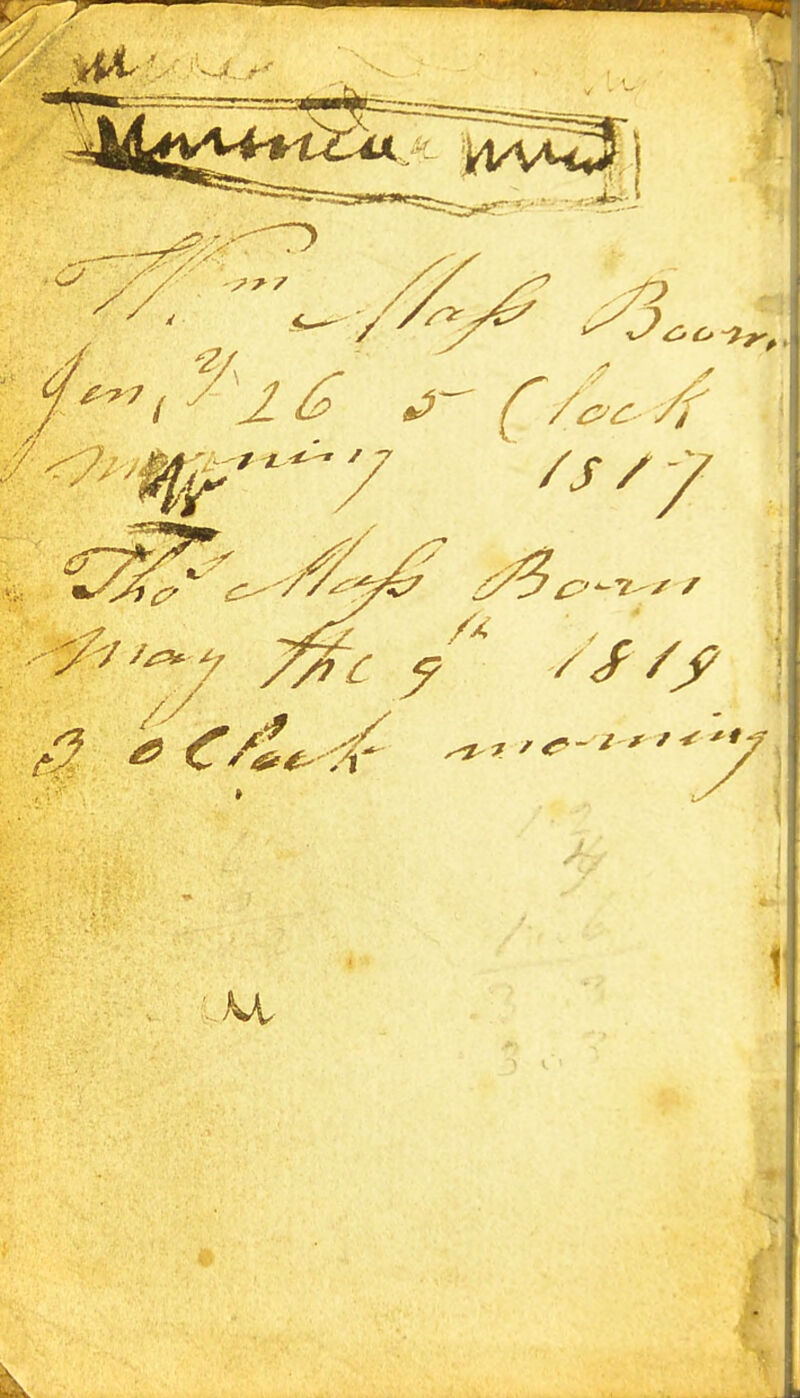 Wm Mass Boorn
Jen,y 26 5 Clock
morning 1817
Thos Mass Born
May the 9th 1819
3 oClock morning
M